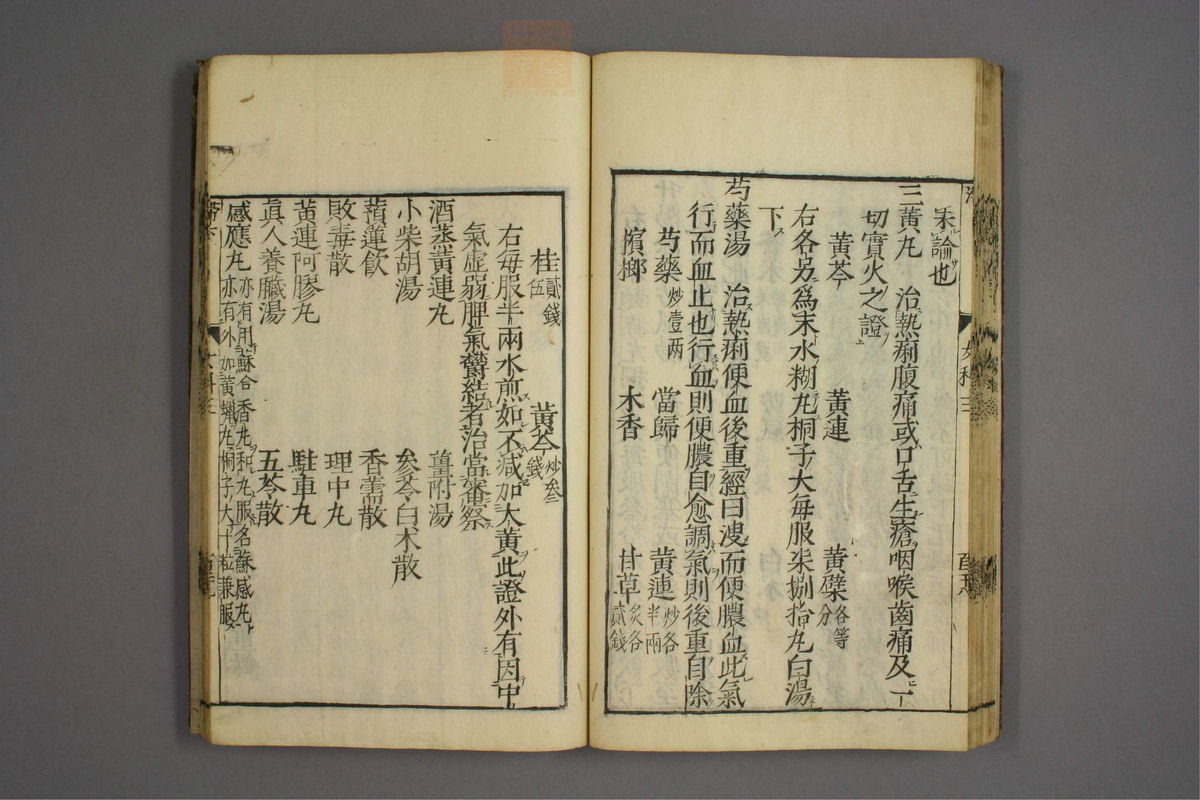 釆論也
三黄丸　治熱痢腹痛或口舌生瘡咽喉齒痛及一
切實火之證
黄芩　黄連　黄檗各等分
右各另爲末水糊丸桐子大每服柒捌拾丸白湯
下
芍藥湯　治熱痢便血後重經曰溲而便膿血此氣
行而血止也行血則便膿自愈調氣則後重自除
芍藥炒壹兩　當歸　黄連炒各半兩
檳榔　木香　甘草炙各貳錢
桂貳錢伍　黄芩炒叁錢
右每服半兩水煎如不減加大黄此證外有因中
氣虛弱脾氣欝結者治當審察
酒蒸黄連丸　薑附湯
小柴胡湯　參苓白朮散
蕷蓮飲　香薷散
敗毒散　理中丸
黄連阿膠丸　駐車丸
眞人養臟湯　五苓散
感應丸亦有用蘇合香丸和丸服名蘇感丸
亦有外加黄蠟丸桐子大十粒兼服